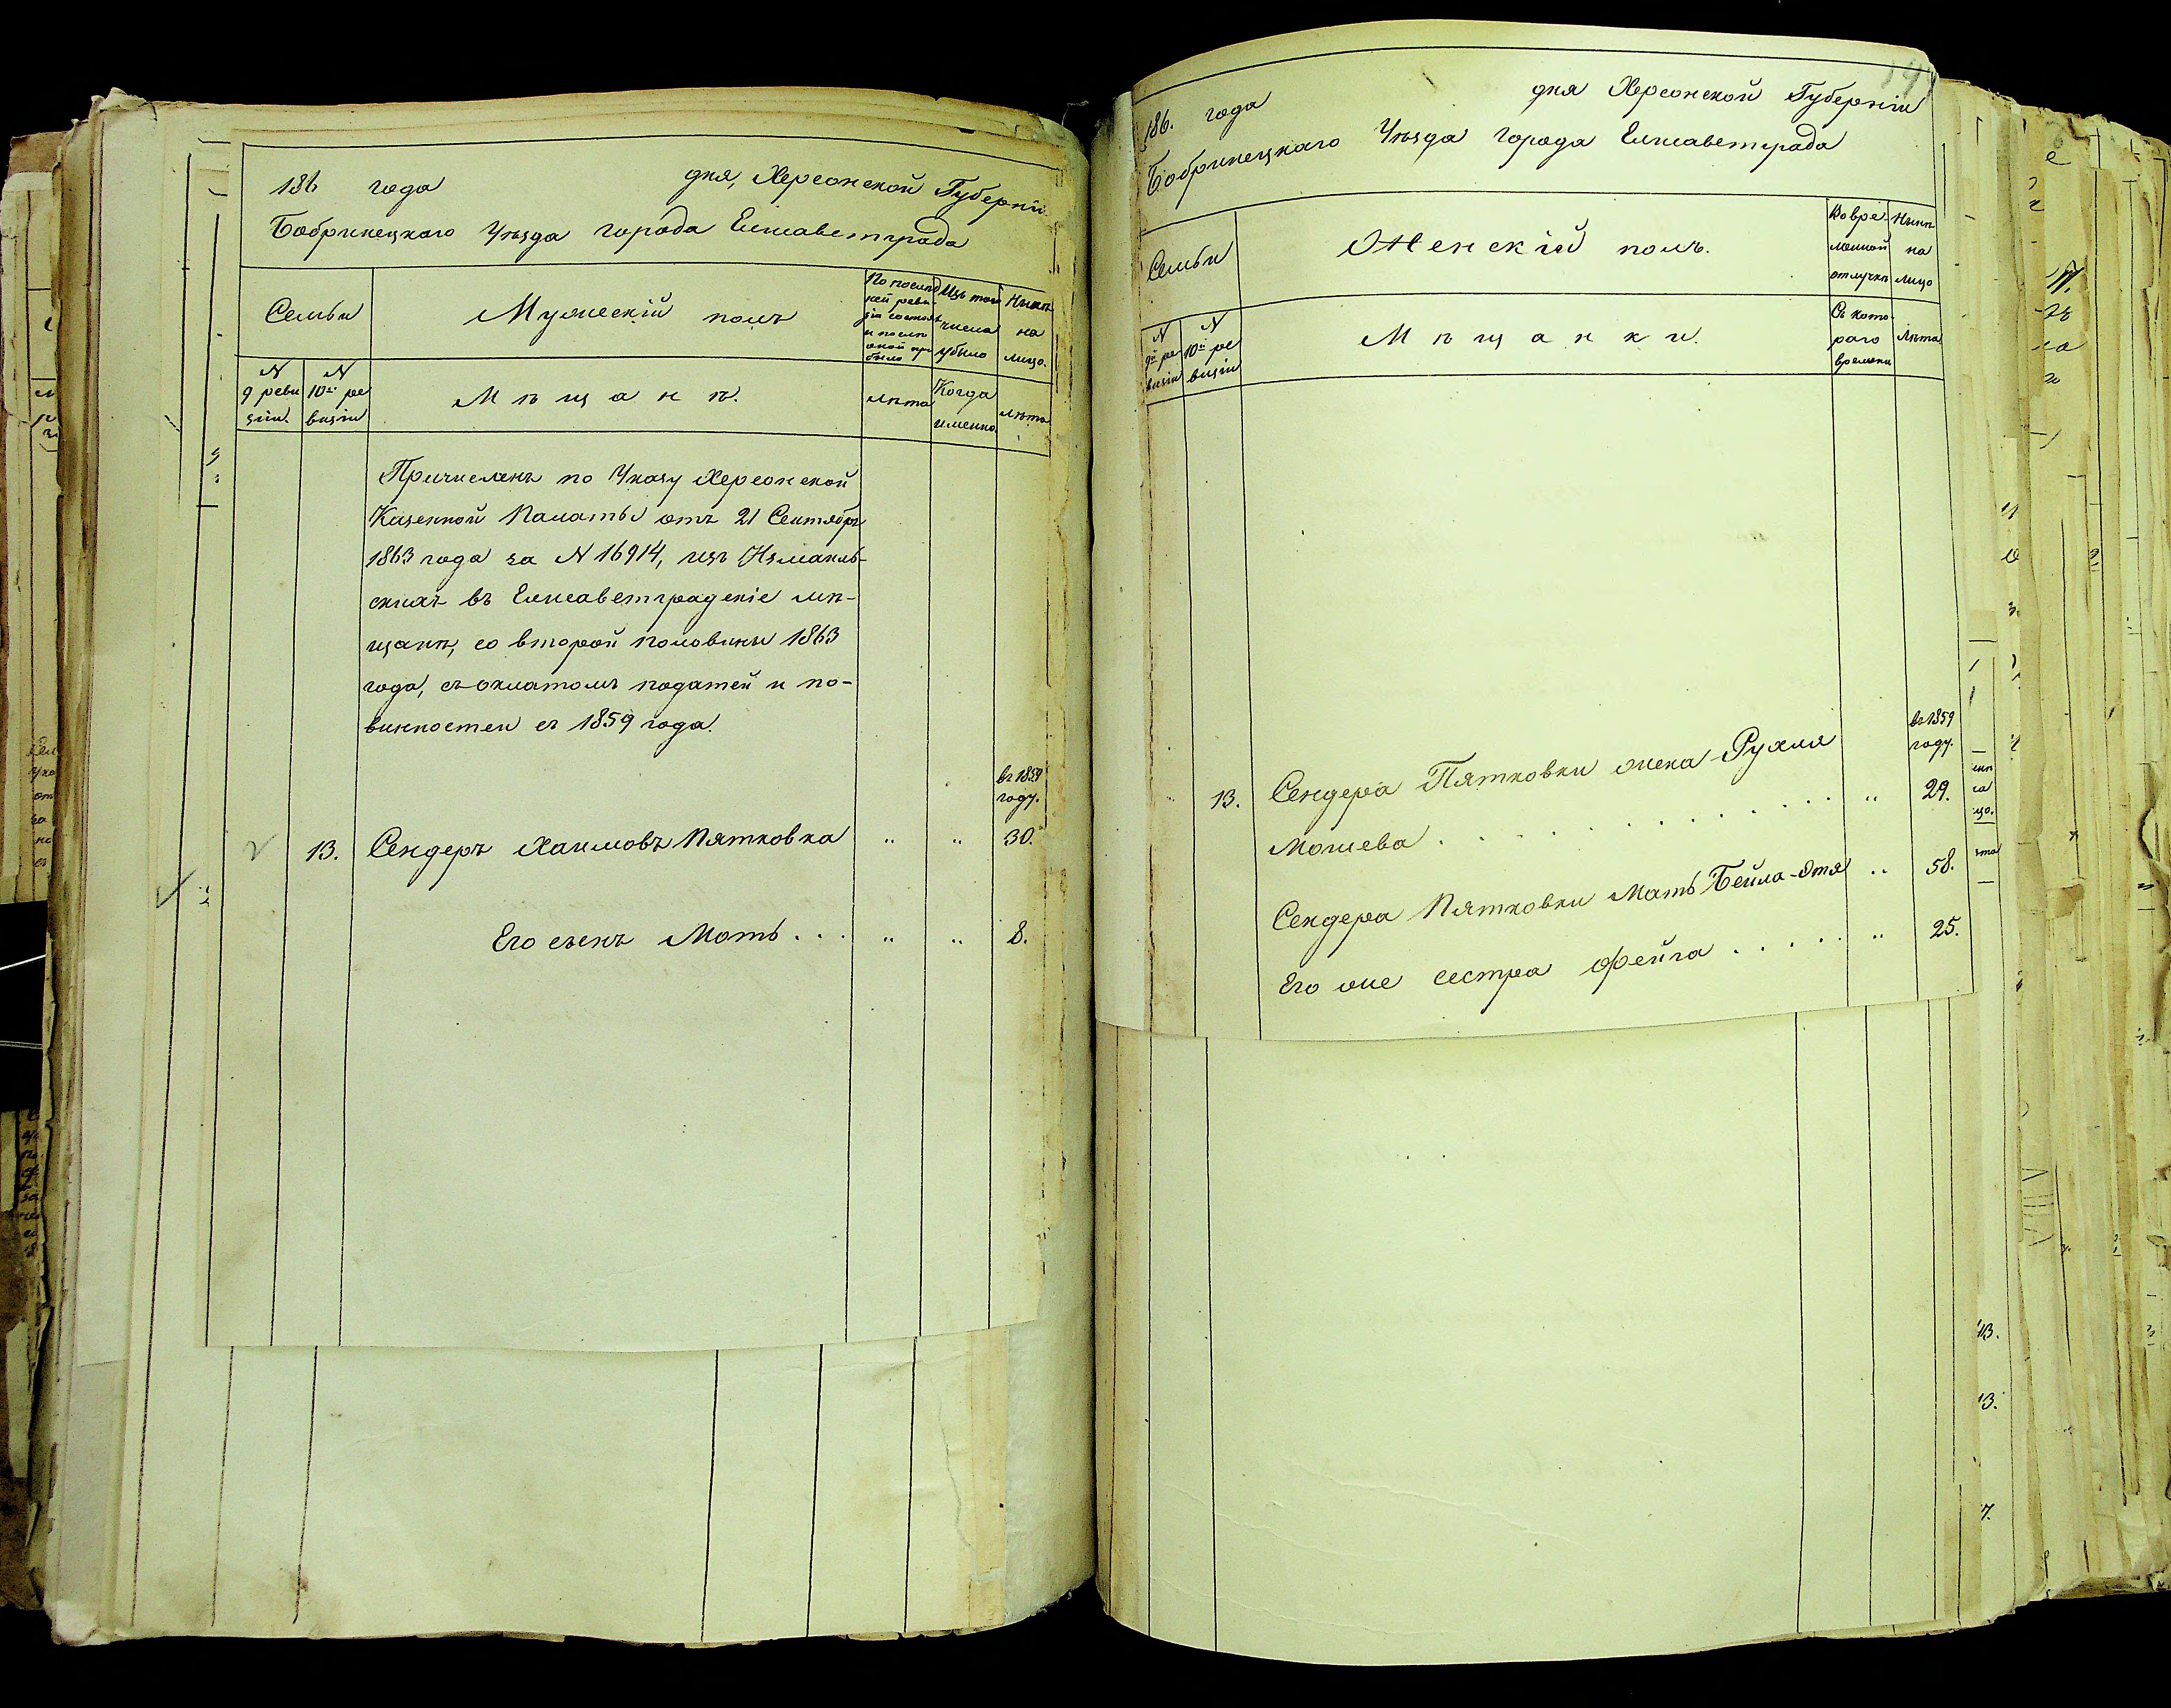 186 года дня, Херсонской Губерніи
Бобринецкаго Уѣзда города Елисаветграда
Семьи
Мужескій полъ
По послѣд
ней реви-
зіи состоял
и послѣ
оной при
было
Изъ того
числа
убыло
Нынѣ
на
лицо.
N
9 реви
зіи.
N
10й ре
визіи
Мѣщанѣ.
лѣта
Когда
именно
лѣта
Причислены по Указу Херсонской
Казенной Палаты отъ 21 Сентября
1863 года за N 16914, изъ Измаиль-
скихъ въ Елисаветградскіе мѣ-
щанѣ, со второй половины 1863
года, съ окладомъ податей и по-
винностей съ 1859 года.
въ 1859
году.
13. Сендеръ Хаимовъ Пятковка " " 30.
Его сынъ Моть . . . " " 8.
186. года дня Херсонской Губерніи
Бобринецкаго Уѣзда города Елисаветграда
Семьи
Женскій полъ.
Во вре-
менной
отлучкѣ
Нынѣ
на
лицо
N
9й ре
визіи
N
10й ре
визіи
Мѣщанки.
Съ кото-
раго
времени
Лѣта
въ 1859
году.
13. Сендера Пятковки жена Рухля
Мошева . . . . . . . . . . . " 29.
Сендера Пятковки мать Бейла-Этя " 58.
Его же сестра Фейга . . . . . " 25.